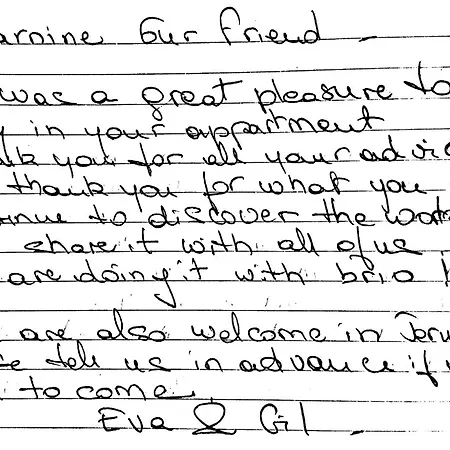 our friend
was a great pleasure to
in your appartment
you for all your advic
thank you for what you
nue to discover the
share it with all of us
are doing it with brio
are also welcome in Jeru
tell us in advance if
to come
Eva & Gil